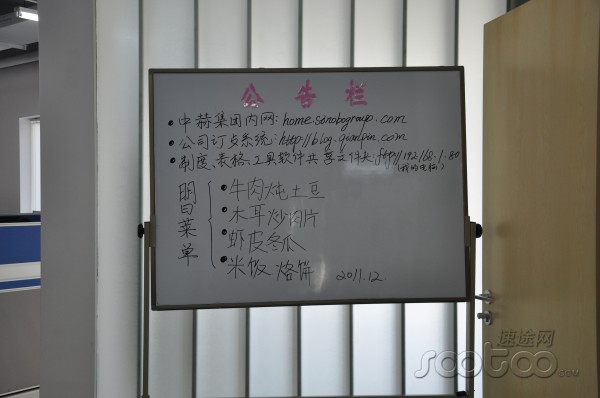 公告栏
• 中赫集团内网: home.sinobogroup.com
• 公司订点系统: http://blog.qianpin.com
• 制度、表格、工具软件共享文件夹: ftp://192.168.1.80
(我的电脑)
明日菜单
• 牛肉炖土豆
• 木耳炒肉片
• 虾皮冬瓜
• 米饭 烙饼
2011.12.
速途网
sootoo
.COM